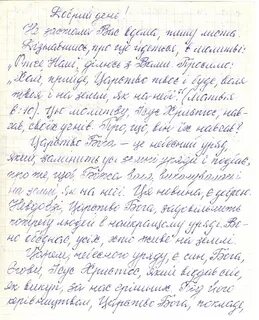 Добрий день!
Не застали Вас вдома, пишу листа.
Дізнавшись, про що йдеться, в молитві:
„Отче Наш", ділюся з Вами. Просимо:
„Хай, прийде, Царство твоє і буде, воля
твоя і на землі, як на небі" (Матвія
6:10). Цю молитву, Ісус Христос, нав-
чав, своїх учнів. Про, що, він їх навчав?
Царство Бога — це небесний уряд,
який, замінить усі земні уряди і подбає,
про те, щоб, Божа воля виконувалась і
на землі, як на небі. Ця новина, є доброю.
Невдовзі, Царство Бога, задовольнить
потребу людей в найкращому уряді. Во-
но об'єднає, усіх, хто живе на землі.
Царем, небесного уряду, є син, Бога,
Єгови, Ісус Христос, який віддав себе,
як викуп, за нас грішних. Під його
керівництвом, Царство Бога, покладе,